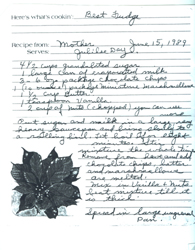 Here's what's cookin': Best Fudge
Recipe from: Mother June 15, 1989
Serves: Jubilee Day
4 1/2 cups granulated sugar
1 large can of evaporated milk
3 - 6 oz package chocolate chips
package miniature marshmallows
1/2 cup Butter
1 teaspoon Vanilla
2 cups of nuts (chopped) you can use
more
Put sugar and milk in a large
heavy saucepan and bring slowly to
a rolling boil. Let boil for eight
minutes. Stir
mixture the whole time
Remove from heat and add
chocolate chips, butter
and marshmallows
are melted.
mix in Vanilla & Nuts
beat mixture till it
is thick.
Spread in large
Pan.